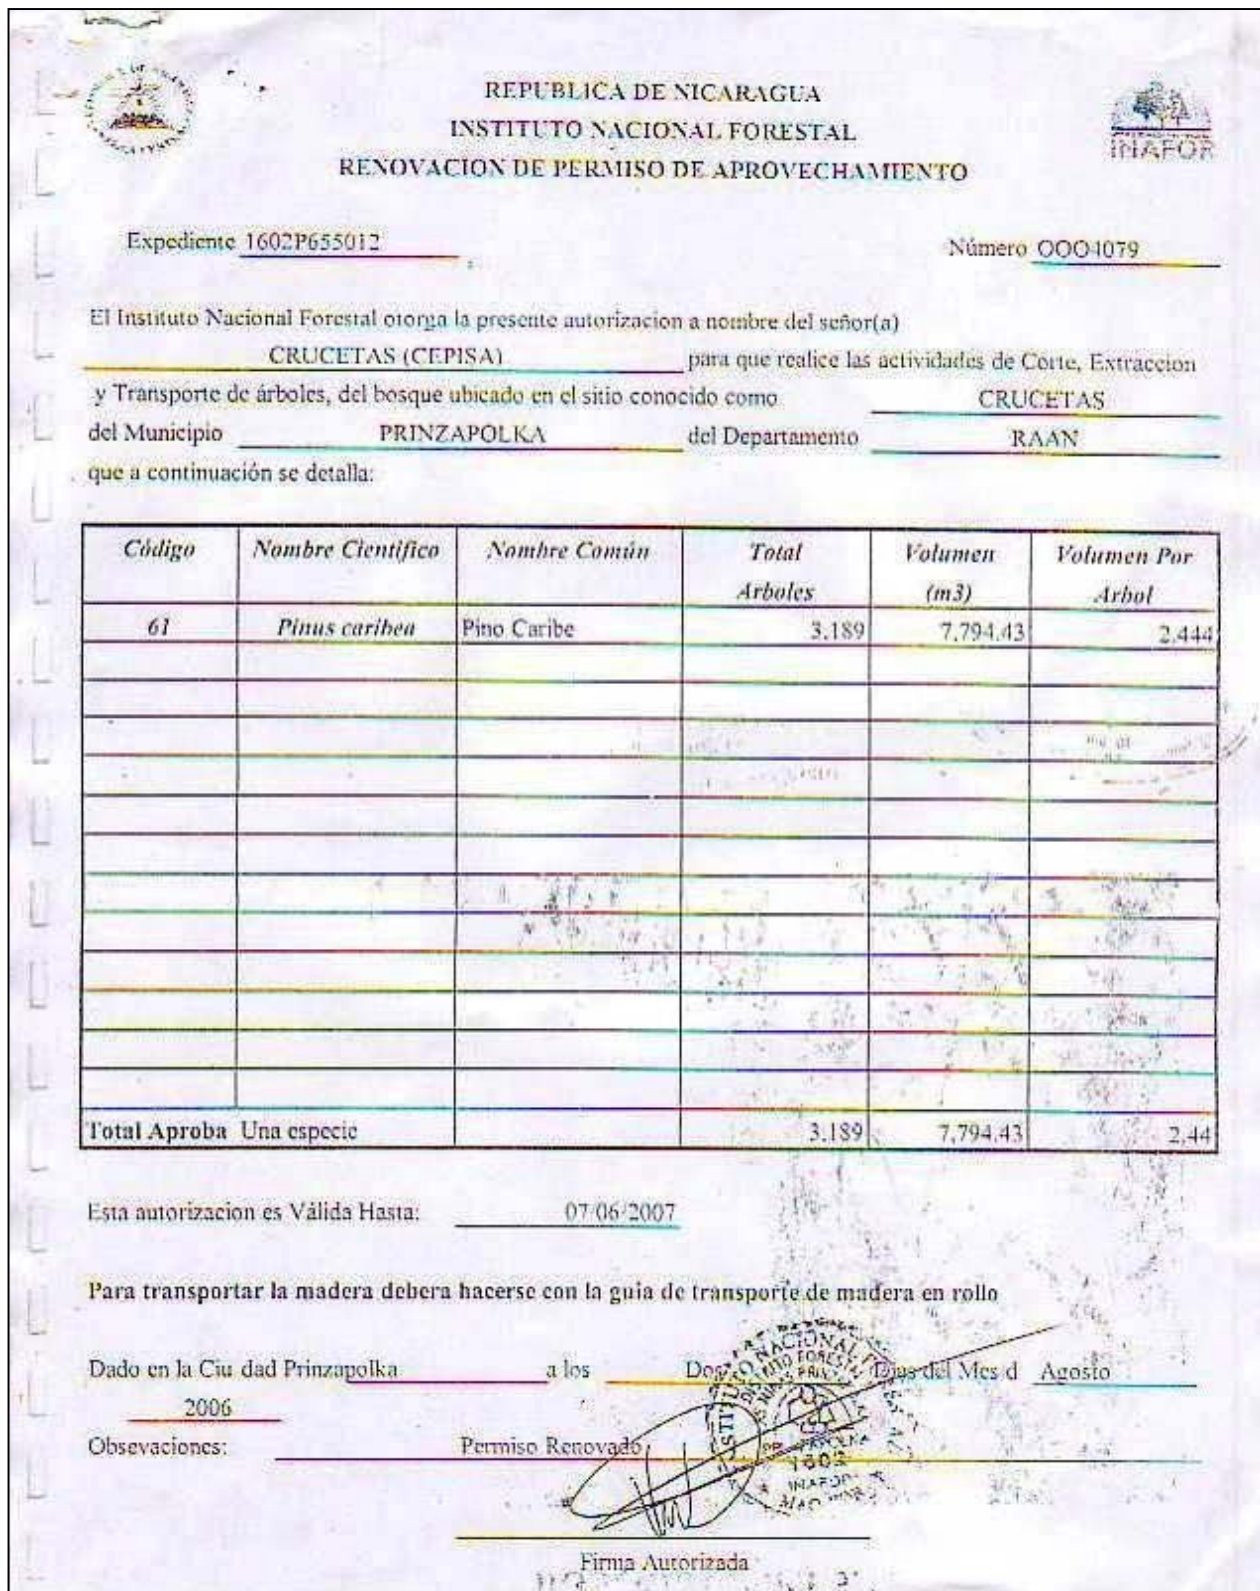 REPUBLICA DE NICARAGUA
INSTITUTO NACIONAL FORESTAL
RENOVACION DE PERMISO DE APROVECHAMIENTO
INAFOR
Expediente 1602P655012
Número OOO4079
El Instituto Nacional Forestal otorga la presente autorizacion a nombre del señor(a)
CRUCETAS (CEPISA) para que realice las actividades de Corte, Extraccion
y Transporte de árboles, del bosque ubicado en el sitio conocido como CRUCETAS
del Municipio PRINZAPOLKA del Departamento RAAN
que a continuación se detalla:
Código Nombre Científico Nombre Común Total Arboles Volumen (m3) Volumen Por Arbol
61 Pinus caribea Pino Caribe 3.189 7,794.43 2.444
Total Aproba Una especie 3.189 7,794.43 2.44
Esta autorizacion es Válida Hasta: 07/06/2007
Para transportar la madera debera hacerse con la guia de transporte de madera en rollo
Dado en la Ciu dad Prinzapolka a los Dos Dias del Mes d Agosto
2006
Obsevaciones: Permiso Renovado
INAFOR
Firma Autorizada